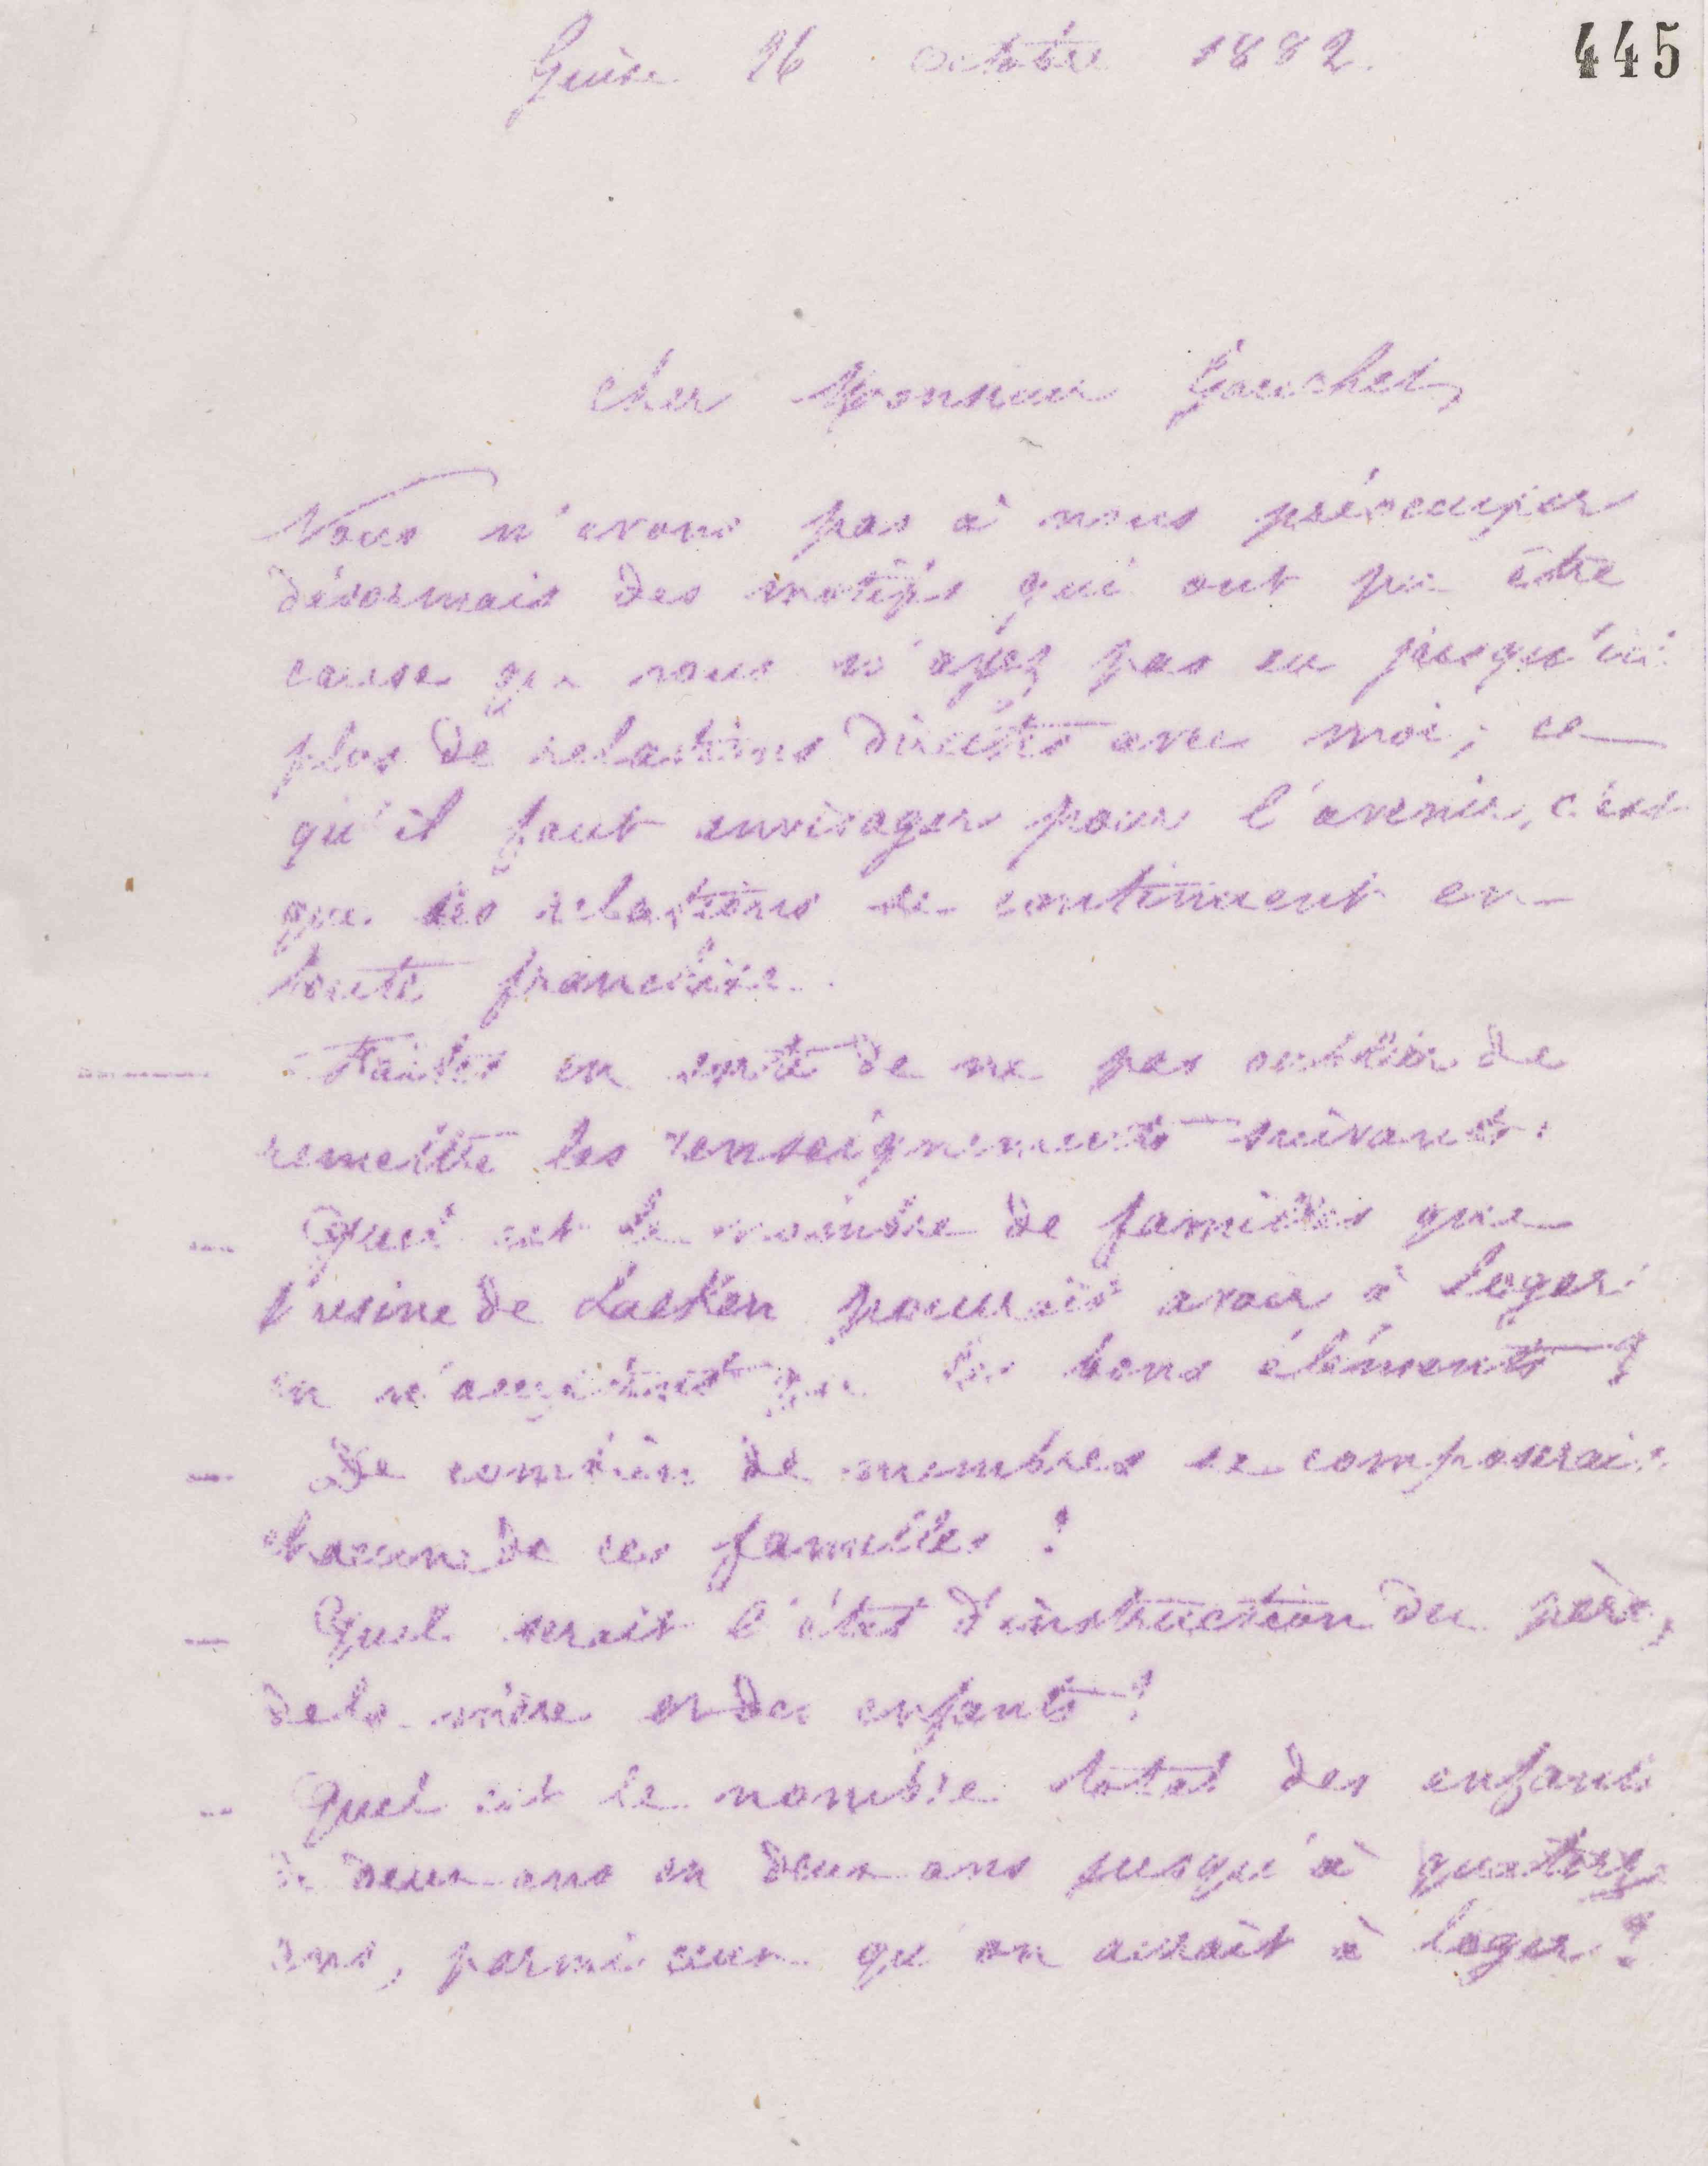 445
Guise 26 octobre 1882.
Cher Monsieur Gauchet,
Nous n'avons pas à nous préoccuper
désormais des motifs qui ont pu être
cause que vous n'ayez pas eu jusqu'ici
plus de relations directes avec moi ; ce
qu'il faut envisager pour l'avenir, c'est
que les relations se continuent en
toute franchise.
Faites en sorte de ne pas oublier de
remettre les renseignements suivants :
— Quel est le nombre de familles que
l'usine de Laeken pourrait avoir à loger
en n'acceptant que les bons éléments ?
— De combien de membres se composerait
chacune de ces familles ?
— Quel serait l'état d'instruction du père,
de la mère et des enfants ?
— Quel est le nombre total des enfants
de deux ans en deux ans jusqu'à quatorze
ans, parmi ceux qu'on aurait à loger ?